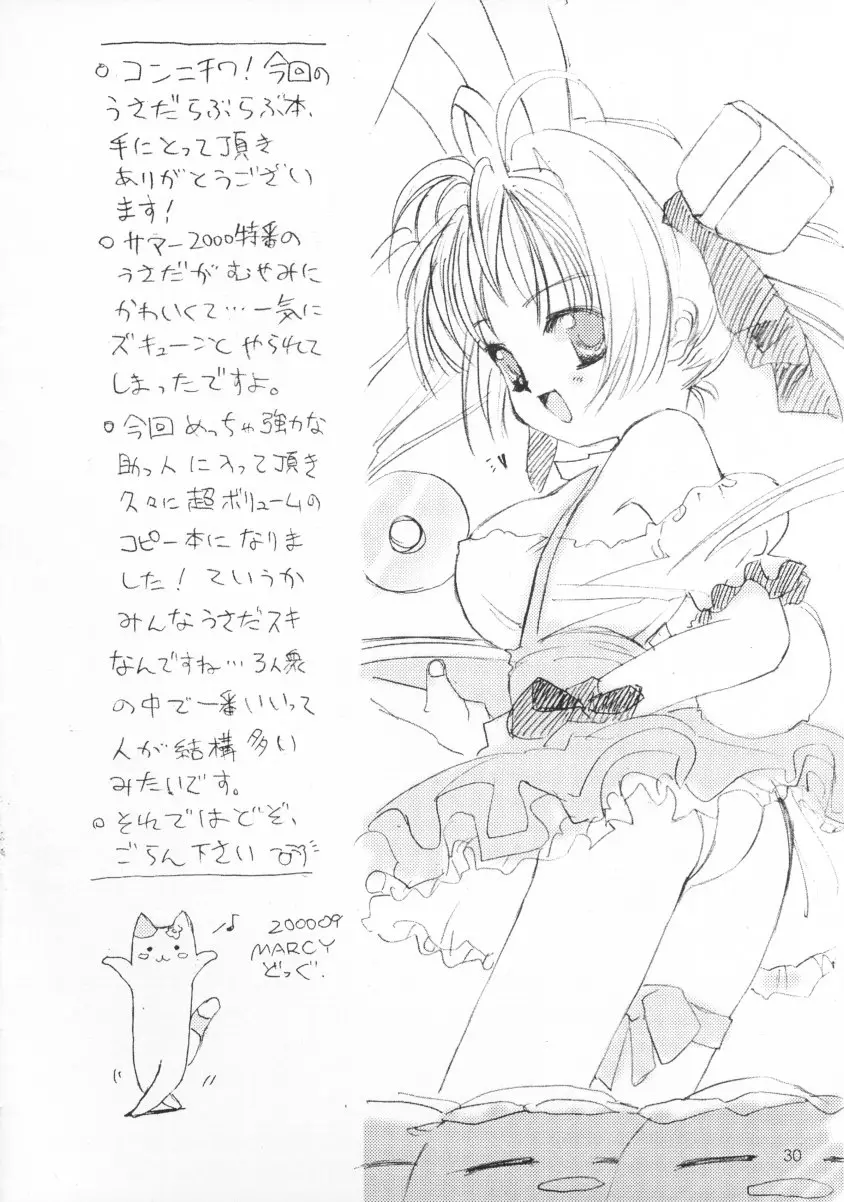 ○ コンニチワ! 今回の
うさだらぶらぶ本、
手にとって頂き
ありがとうござい
ます!
○ サマー2000特番の
うさだがむやみに
かわいくて…一気に
ズキューンとやられて
しまったですよ。
○ 今回めっちゃ強力な
助っ人に入って頂き
久々に超ボリュームの
コピー本になりま
した! ていうか
みんなうさだスキ
なんですね…3人衆
の中で一番いいって
人が結構多い
みたいです。
○ それではどぞ、
ごらん下さい
♪ 200009
MARCY
どっぐ.
30